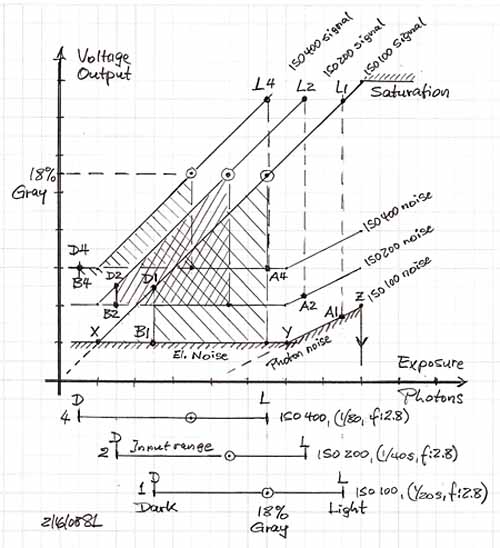 Voltage
Output
ISO 400 signal
ISO 200 signal
ISO 100 signal
L4
L2
L1
Saturation
18%
Gray
ISO 400 noise
ISO 200 noise
ISO 100 noise
D4
B4
D2
B2
D1
A4
A2
A1
Z
X
B1
Y
El. Noise
Photon noise
Exposure
Photons
D
L
4
ISO 400, (1/80, f:2.8)
D
L
2
Input range
ISO 200, (1/40s, f:2.8)
D
L
1
ISO 100, (1/20s, f:2.8)
Dark
18%
Gray
Light